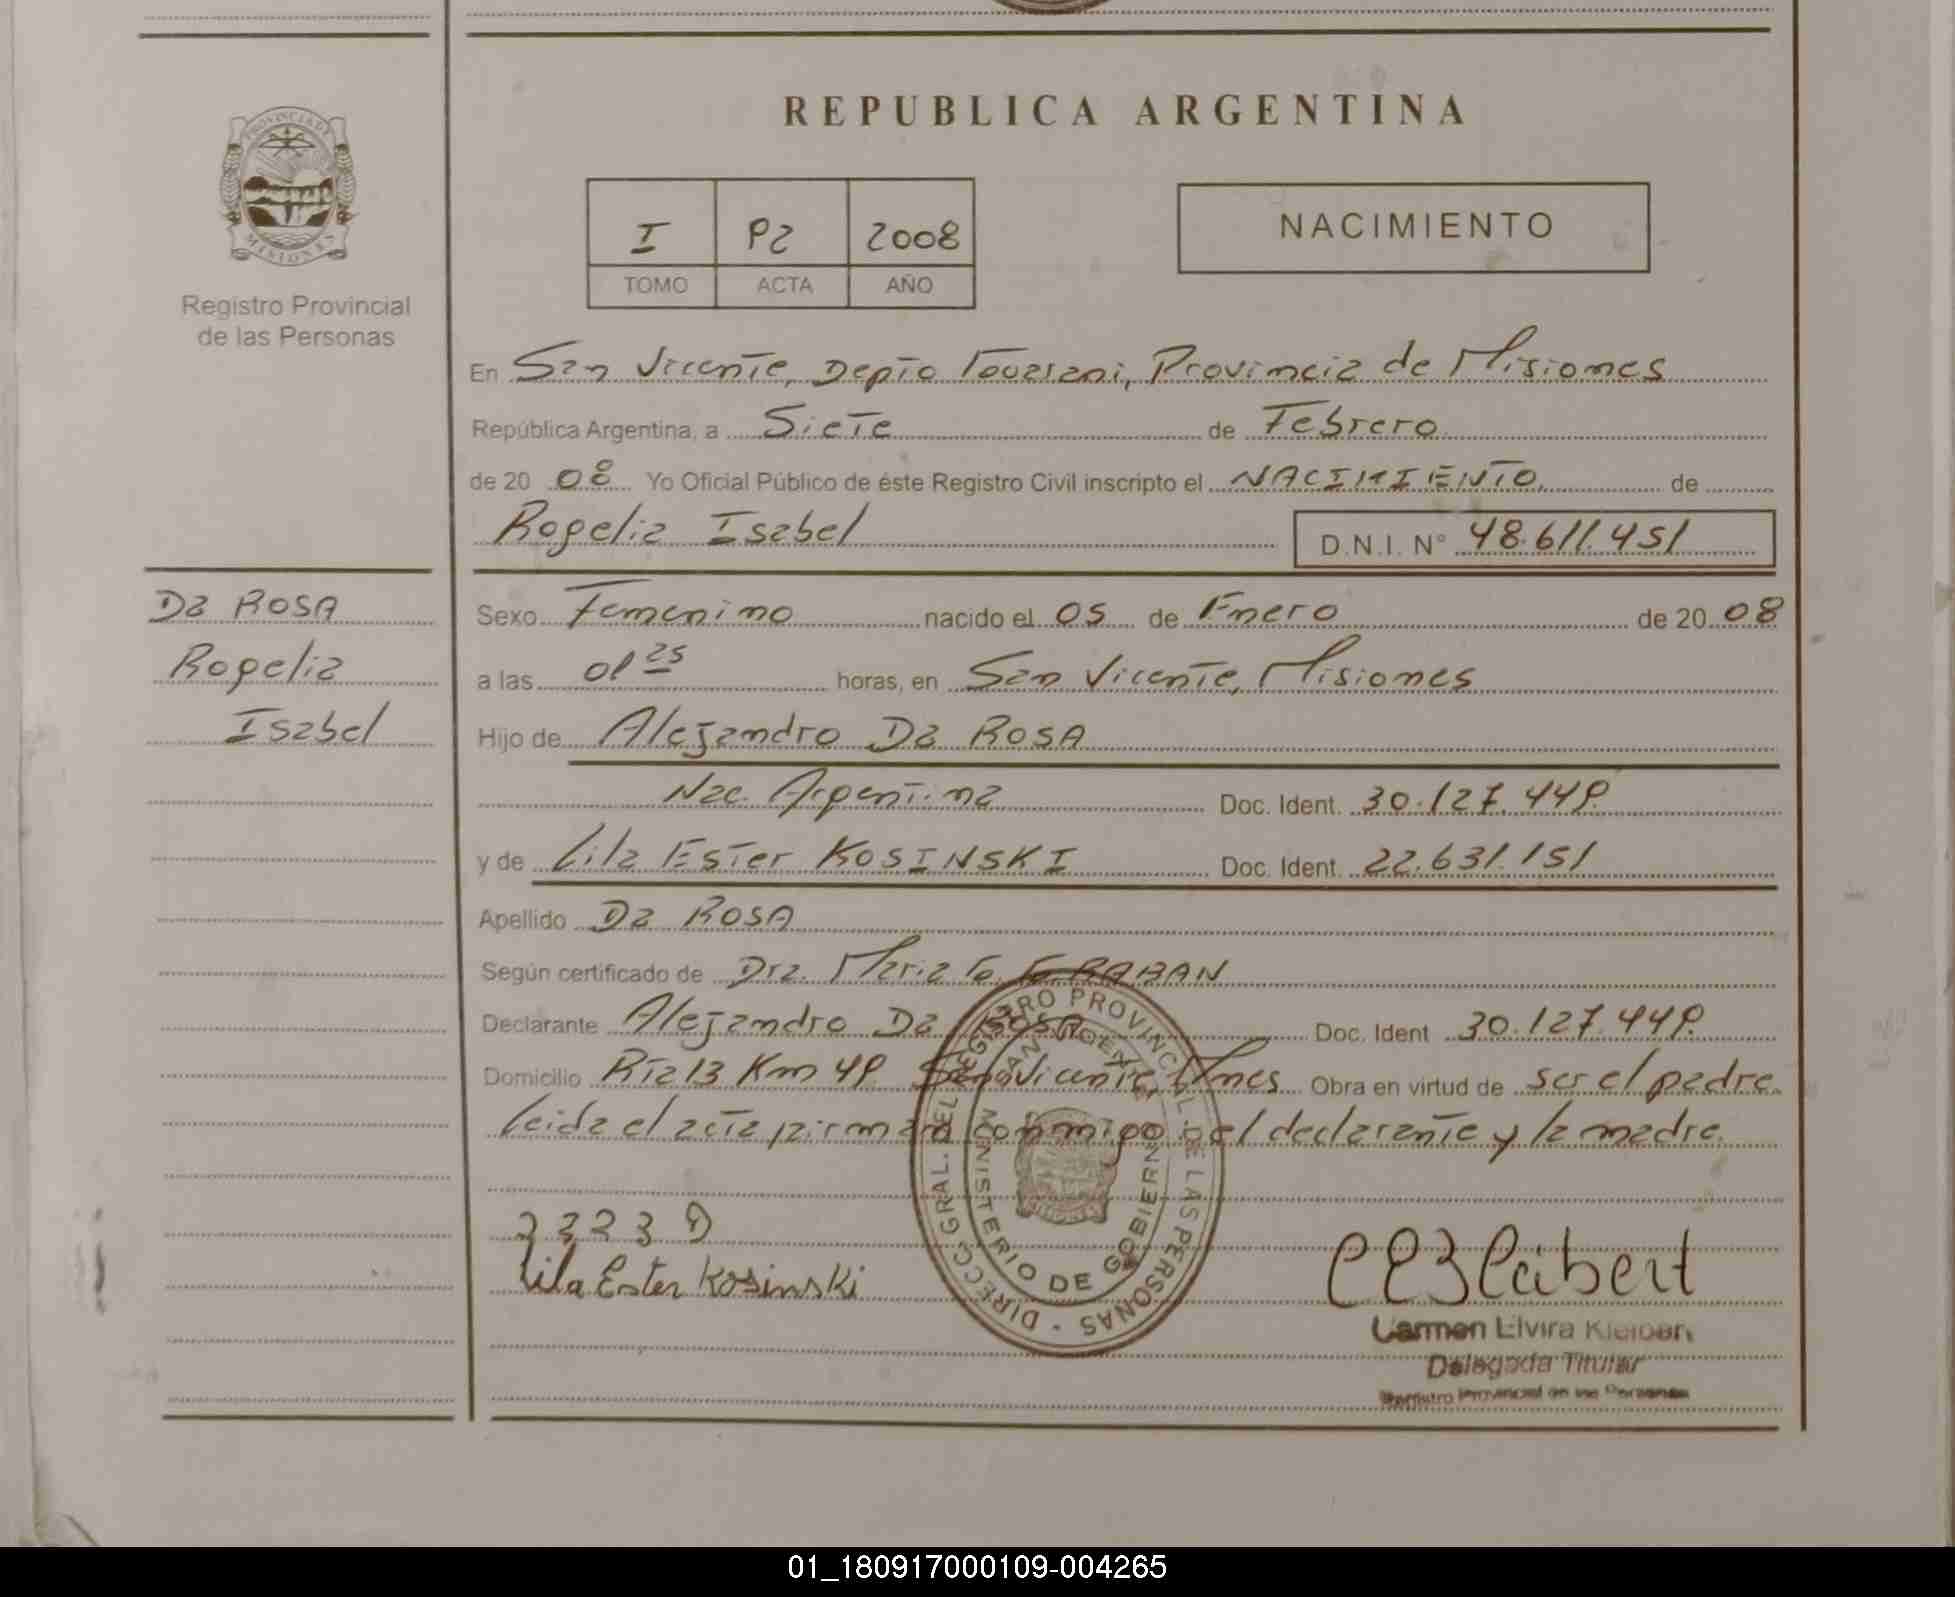 REPUBLICA ARGENTINA
PROVINCIA DE MISIONES
Registro Provincial
de las Personas
I P2 2008
TOMO ACTA AÑO
NACIMIENTO
En San Vicente, Depto Guarani, Provincia de Misiones
República Argentina, a Siete de Febrero
de 20 08 Yo Oficial Público de éste Registro Civil inscripto el NACIMIENTO de
Rogelia Isabel D.N.I. N° 48.611.451
Da ROSA
Rogelia
Isabel
Sexo Femenino nacido el 05 de Enero de 20 08
a las 01 25 horas, en San Vicente, Misiones
Hijo de Alejandro Da ROSA
Nac. Argentina Doc. Ident. 30.127.449
y de Lila Ester KOSINSKI Doc. Ident. 22.631.151
Apellido Da ROSA
Según certificado de Dra. Maria G. G. RABAN
Declarante Alejandro Da ROSA Doc. Ident 30.127.449
Domicilio Rta 13 Km 49 San Vicente, Mnes Obra en virtud de ser el padre
Leida el acta, firman conmigo el declarante y la madre.
DIRECC. GRAL. DEL REGISTRO PROVINCIAL DE LAS PERSONAS
SAN VICENTE
MINISTERIO DE GOBIERNO
Lila Ester Kosinski
Carmen Elvira Kleibert
Delegada Titular
Registro Provincial de las Personas
01_180917000109-004265